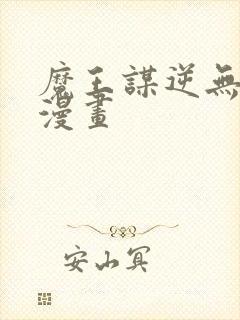 魔王謀逆無
漫畫
安山冥